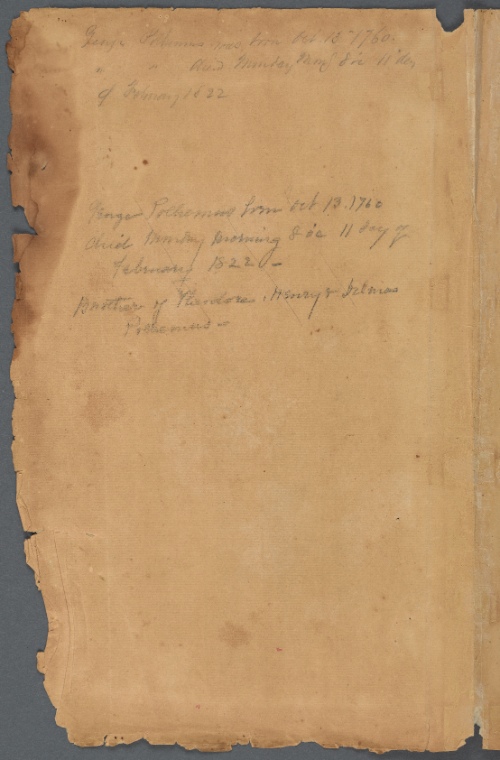 George Polhemus was born Oct 13 1760
" " died Monday Morg 8 oc 11 day
of February 1822
George Polhemus born Oct 13. 1760
died Monday morning 8 oc 11 day of
February 1822 -
Brother of Theodore, Henry &
Polhemus -